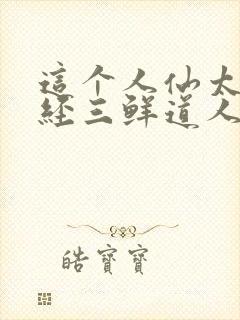 這个人仙太
經三鲜道人
皓寶寶